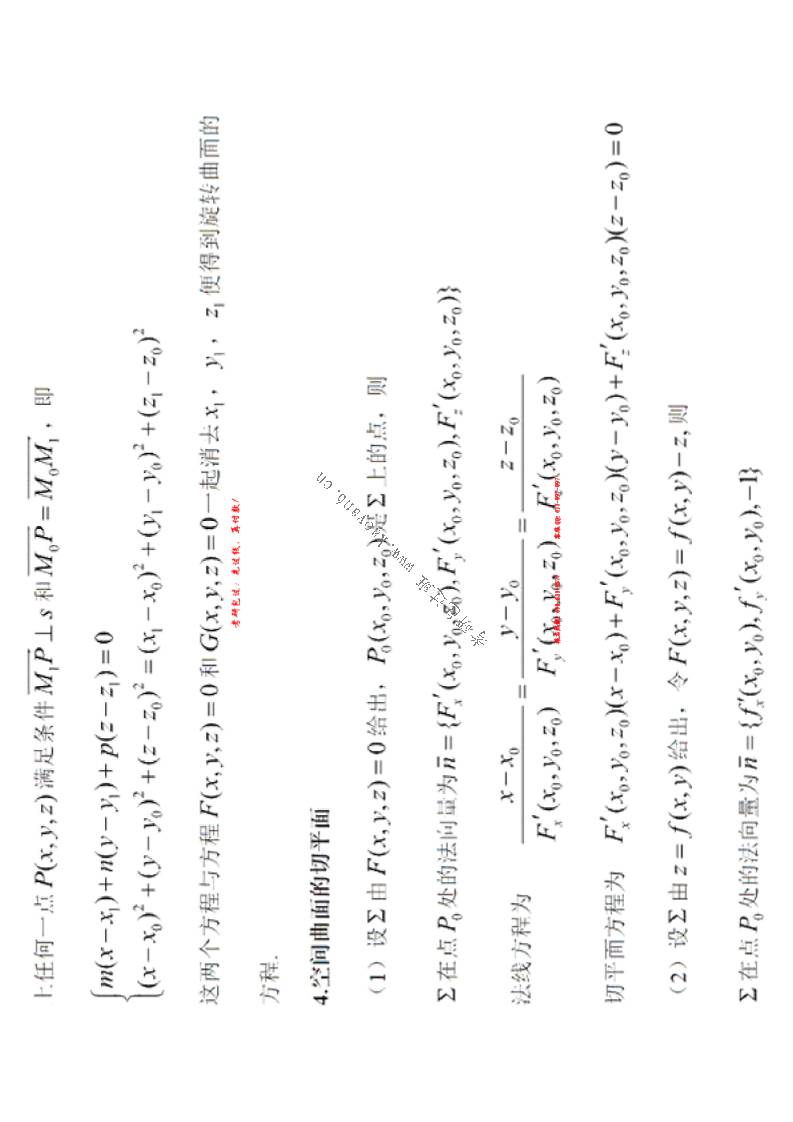 上任何一点 P(x,y,z) 满足条件 M₁P ⊥ s 和 M₀P = M₀M₁ ，即
{ m(x−x₁)+n(y−y₁)+p(z−z₁)=0
(x−x₀)²+(y−y₀)²+(z−z₀)²=(x₁−x₀)²+(y₁−y₀)²+(z₁−z₀)²
这两个方程与方程 F(x,y,z)=0 和 G(x,y,z)=0 一起消去 x₁ ， y₁ ， z₁ 便得到旋转曲面的
考研包过：先过线，再付款！
方程.
4.空间曲面的切平面
（1）设Σ由 F(x,y,z)=0 给出， P₀(x₀,y₀,z₀) 是Σ上的点，则
www.kaoyan6.cn
Σ在点 P₀ 处的法向量为 n̄={Fx′(x₀,y₀,z₀),Fy′(x₀,y₀,z₀),Fz′(x₀,y₀,z₀)}
法线方程为 (x−x₀)/Fx′(x₀,y₀,z₀) = (y−y₀)/Fy′(x₀,y₀,z₀) = (z−z₀)/Fz′(x₀,y₀,z₀)
切平面方程为 Fx′(x₀,y₀,z₀)(x−x₀)+Fy′(x₀,y₀,z₀)(y−y₀)+Fz′(x₀,y₀,z₀)(z−z₀)=0
（2）设Σ由 z=f(x,y) 给出，令 F(x,y,z)=f(x,y)−z,则
Σ在点 P₀ 处的法向量为 n̄={fx′(x₀,y₀),fy′(x₀,y₀),−1}